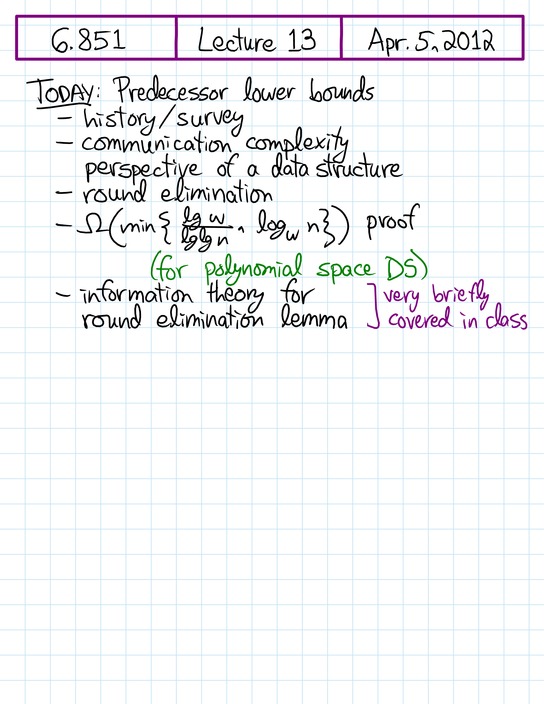 6.851 Lecture 13 Apr. 5, 2012
TODAY: Predecessor lower bounds
– history/survey
– communication complexity
perspective of a data structure
– round elimination
– Ω(min{lg w / lg lg n, log_w n}) proof
(for polynomial space DS)
– information theory for ] very briefly
round elimination lemma ] covered in class